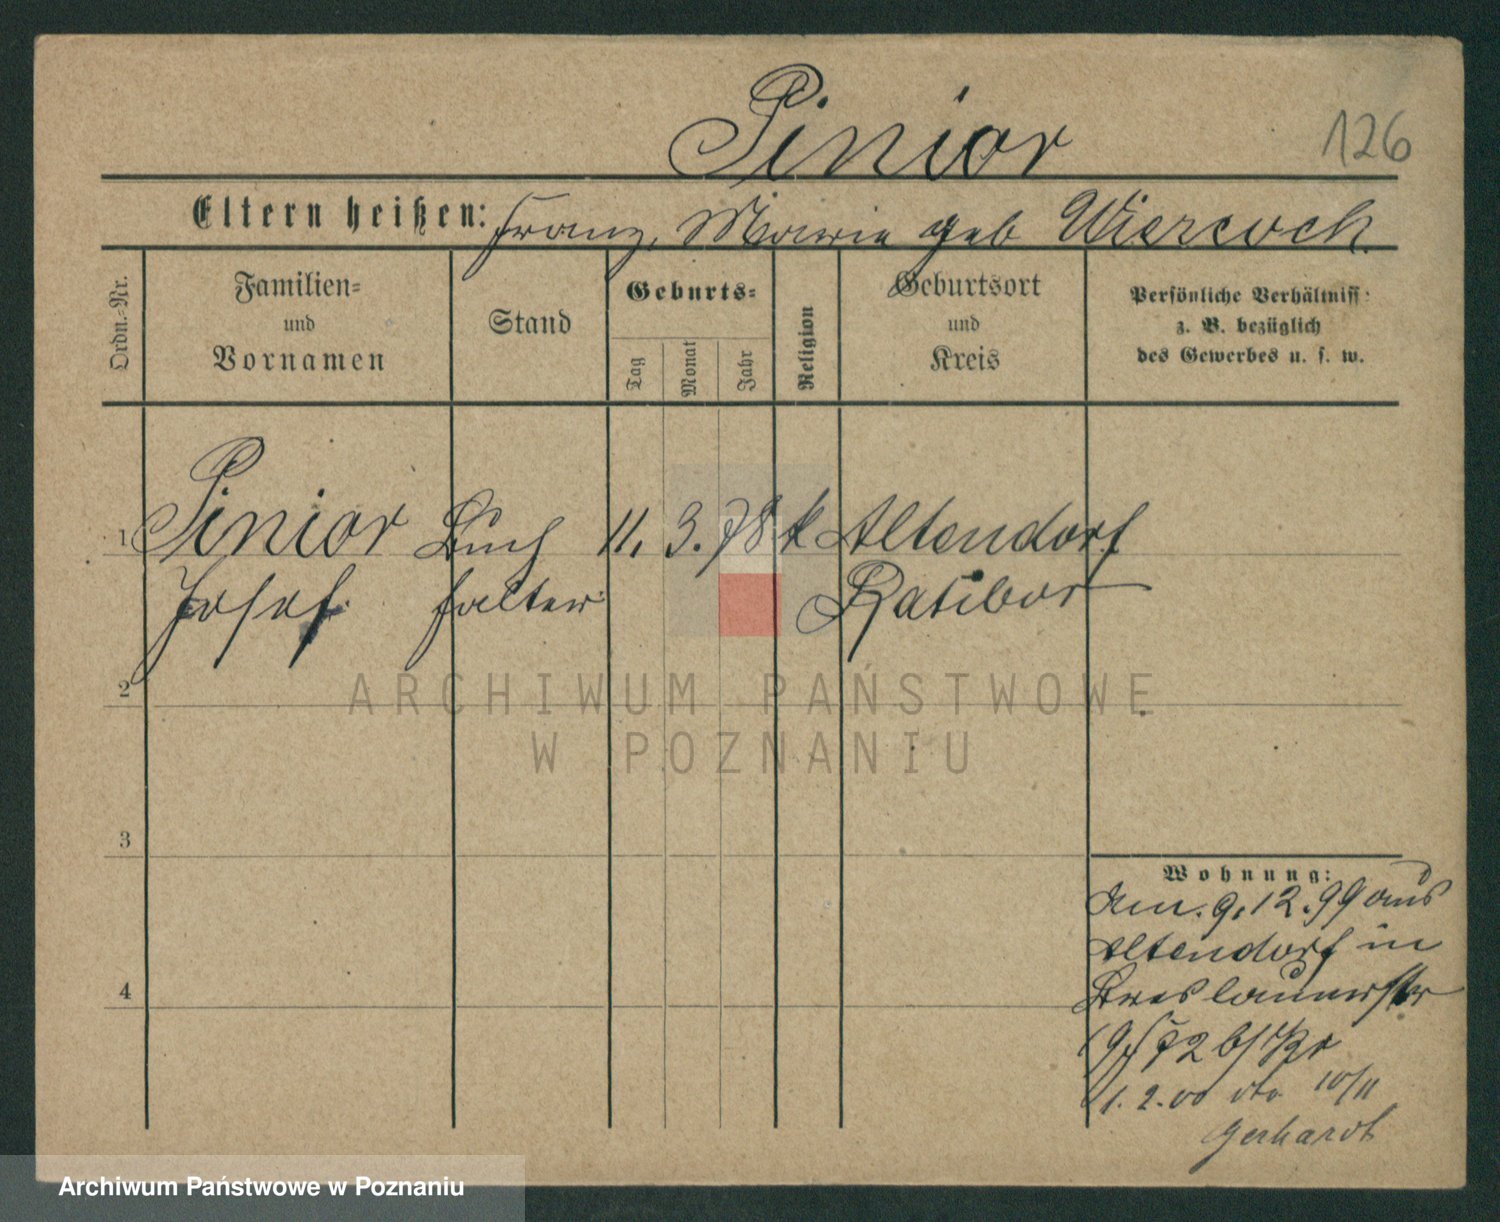 Pinior
126
Eltern heißen: Franz, Marie geb Wiercoch
Ordn.-Nr.
Familien- und Vornamen
Stand
Geburts-
Tag
Monat
Jahr
Religion
Geburtsort und Kreis
Persönliche Verhältniss z. B. bezüglich des Gewerbes u. s. w.
1 Pinior Buch 11. 3. 78 k Altendorf
Josef halter Ratibor
2
ARCHIWUM PAŃSTWOWE
W POZNANIU
3
4
Wohnung:
Am. 9.12.99 aus
Altendorf in
Breslauerstr
1.2.00 dto 10/11
Gerhardt
Archiwum Państwowe w Poznaniu